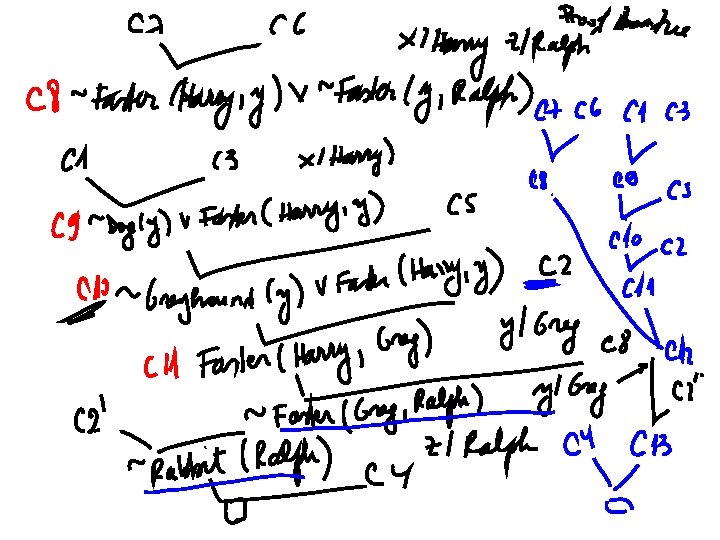 C7 C6 x/Harry z/Ralph Proof
C8 ~Faster (Harry, y) v ~Faster (y, Ralph)
C7 C6 C1 C3
C1 C3 x/Harry)
C8 C9 C5
C9 ~Dog(y) v Faster (Harry, y) C5
C10 C2
C10 ~Greyhound (y) v Faster (Harry, y) C2
C11
C11 Faster (Harry, Greg) y/Greg C8 C12
C2' ~Faster (Greg, Ralph) y/Greg C2''
~Rabbit (Ralph) z/Ralph C4 C4 C13